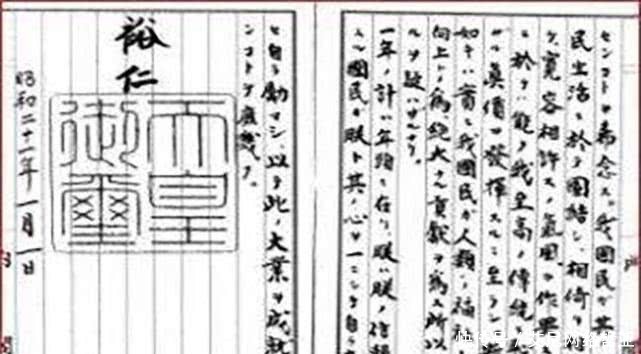 センコトヲ希念ス。我國民ガ其
民生活ニ於テ團結シ、相倚リ
ケ、寛容相許スノ氣風ヲ作興
ニ於テハ能ク我至高ノ傳統
ザル眞價ヲ發揮スルニ至ラン
如キハ實ニ我國民ガ人類ノ福
向上トノ爲、絶大ナル貢獻ヲ爲ス所以
ルヲ疑ハザルナリ。
一年ノ計ハ年頭ニ在リ、朕ハ朕ノ信頼
スル國民ガ朕ト其ノ心ヲ一ニシテ自ラ
ヒ自ラ勵マシ、以テ此ノ大業ヲ成就
ンコトヲ庶幾フ。
裕仁
天皇御璽
昭和二十一年一月一日